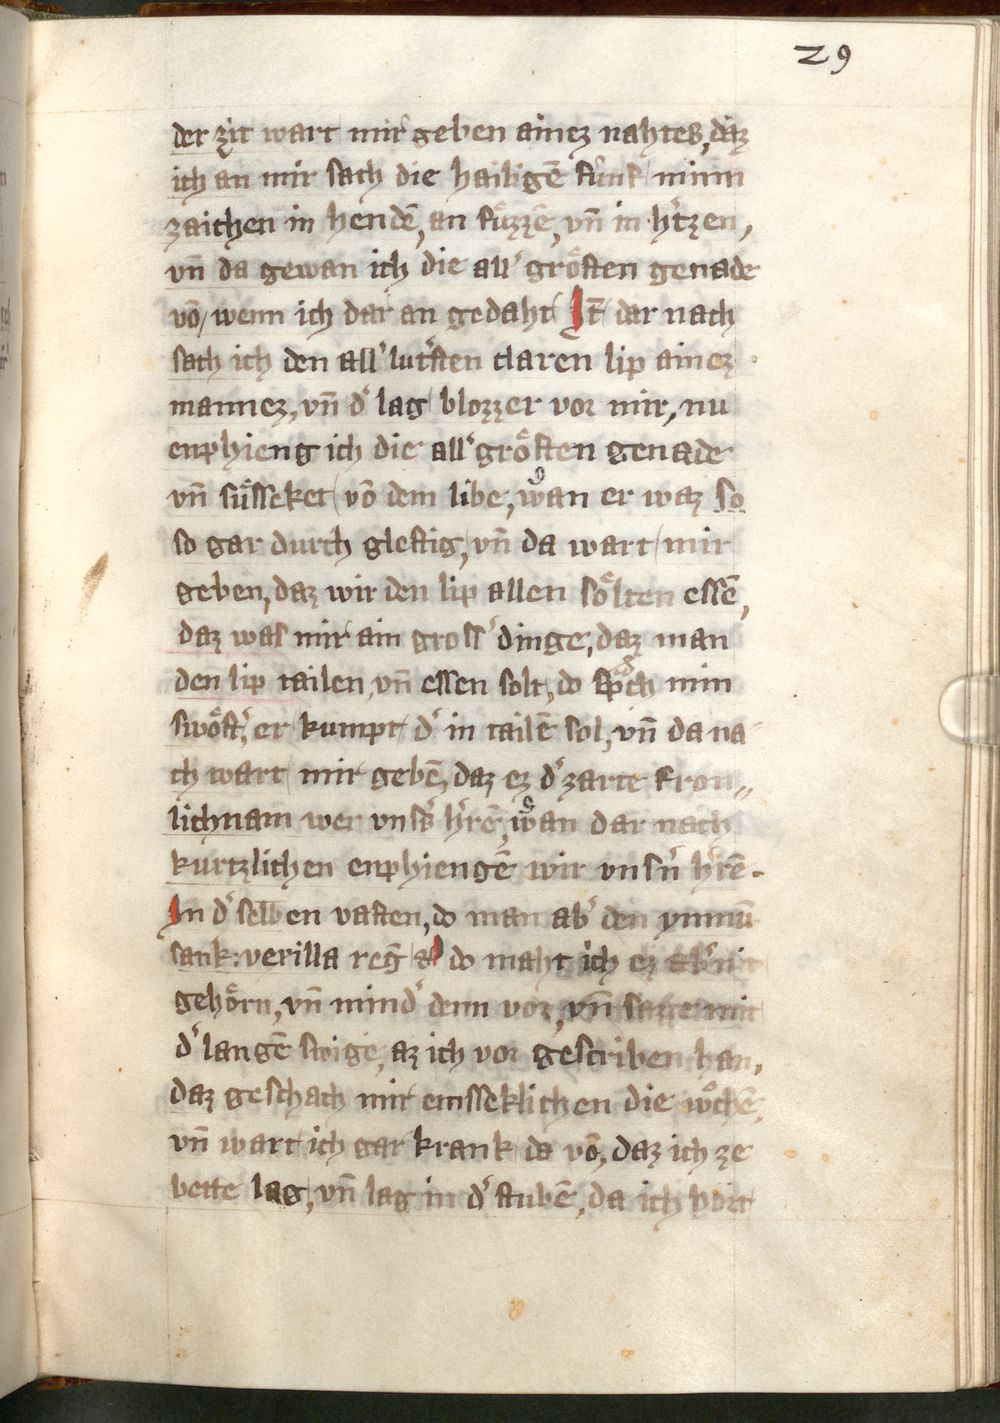 29
der zit wart mir geben ainez nahtes, daz
ich an mir sach die hailigē fúnf minn
zaichen in hendē, an fuͤzzē, vn̄ in hˀtzen,
vn̄ da gewan ich die allˀ groͤsten genade
vō, wenn ich dar an gedaht It̄ dar nach
sach ich den allˀ lutˀsten claren lip ainez
mannez, vn̄ dˀ lag blozzer vor mir, nu
enphieng ich die allˀ groͤsten genade
vn̄ suͤsseket vō dem libe, wan er waz so
so gar durch glestig, vn̄ da wart mir
geben, daz wir den lip allen soͤlten essē,
daz was mir ain grossˀ dinge, daz man
den lip tailen, vn̄ essen solt, do spͣch min
swoͤstˀ, er kumpt dˀ in tailē sol, vn̄ da na
ch wart mir gebē, daz ez dˀ zarte fron„
lichnam wer vnsˀs hˀrē, wan dar nach
kurtzlichen enphiengē wir vnsˀn hˀrē.
In dˀ selben vasten, do man abˀ den ymnū
sank: vexilla reḡ do maht ich ez abˀ nit
gehoͤrn, vn̄ mindˀ denn vor, vn̄ sasse mit
dˀ langē swige, az ich vor gescriben han,
daz geschach mir emsseklichen die woͤchē,
vn̄ wart ich gar krank da vō, daz ich ze
bette lag, vn̄ lag in dˀ stubē, da ich hort